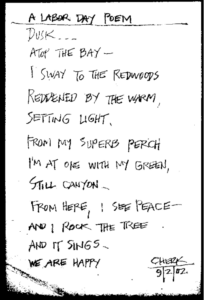 A LABOR DAY POEM
DUSK....
ATOP THE BAY —
I SWAY TO THE REDWOODS
REDDENED BY THE WARM,
SETTING LIGHT.
FROM MY SUPERB PERCH
I'M AT ONE WITH MY GREEN,
STILL CANYON -
FROM HERE, I SEE PEACE—
AND I ROCK THE TREE
AND IT SINGS -
WE ARE HAPPY
9/2/02